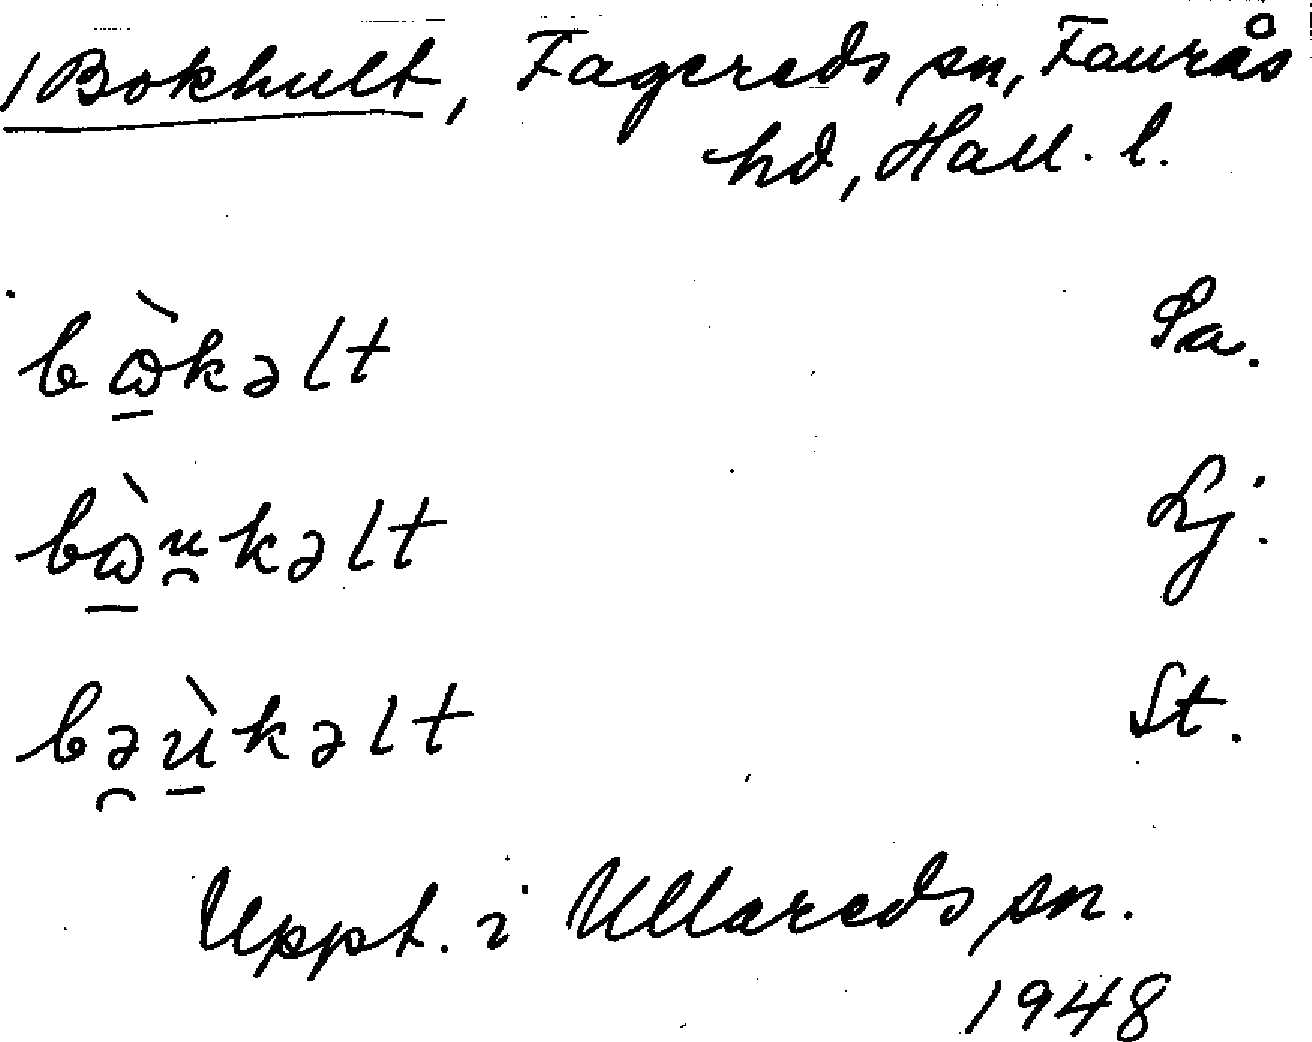 /Bokhult, Fagereds sn, Faurås
hd, Hall. l.
bὼ̲kəlt Sa.
bὼ̲u̯kəlt Lj.
bə̯ù̲kəlt St.
Uppt. i Ullareds sn.
1948